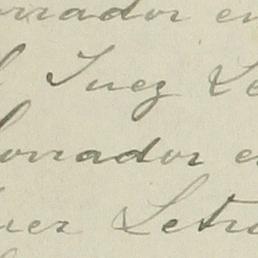 orrador en
Juez Le
orrador e
uez Letra